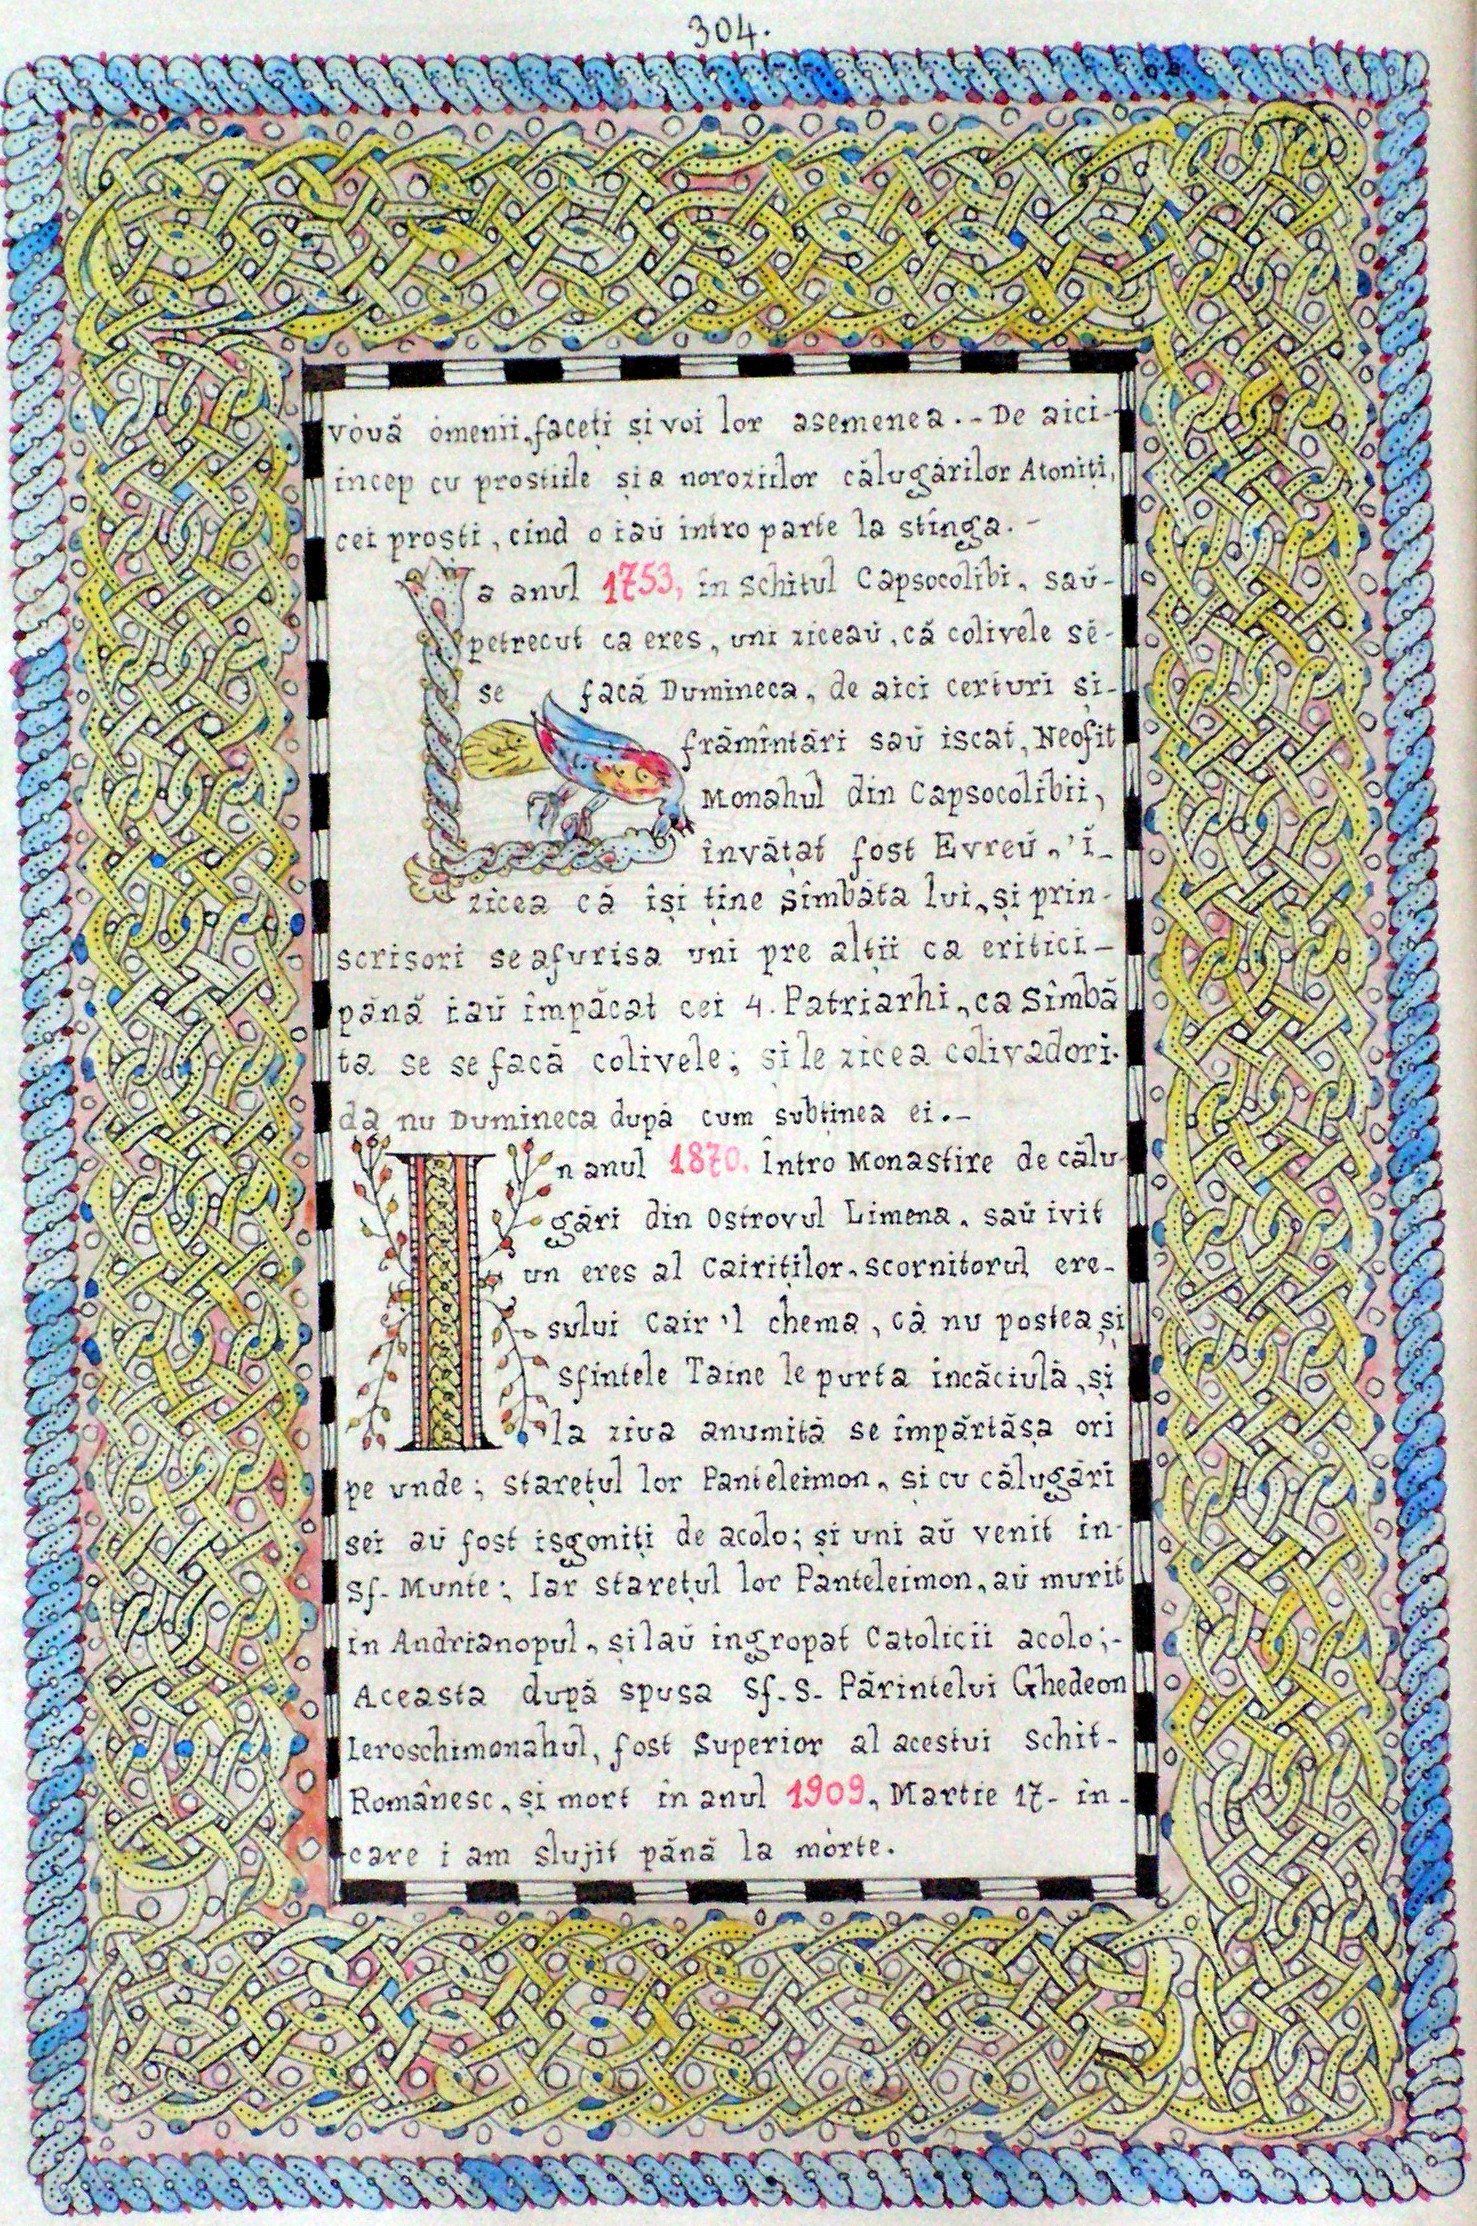 304.
vóuă ómenii, faceți și voi lor asemenea.- De aici-
incep cu prostiile și a noroziilor călugărilor Atoniți,
cei proști, cînd o iaŭ intro parte la stînga.-
La anul 1753, în schitul Capsocolibi, saŭ-
petrecut ca eres, uni ziceaŭ, că colivele sĕ-
se facă Dumineca, de aici certuri și-
frămîntări saŭ iscat, Neofit
Monahul din Capsocolibii,
învățat fost Evreŭ, 'ĭ-
zicea că își ține Sîmbăta lui, și prin-
scrisori se afurisa uni pre alții ca eritici-
pănă iaŭ împăcat cei 4. Patriarhi, ca Sîmbă
ta se se facă colivele; și le zicea colivadori.
da nu Dumineca după cum subținea ei.-
În anul 1870. Într o Monastire de călu-
gări din Ostrovul Limena, saŭ ivit
un eres al Cairiților, scornitorul ere-
sului Cair 'l chema, că nu postea și
sfintele Taine le purta incăciulă, și
la ziua anumită se împărtășa ori
pe unde; starețul lor Panteleimon, și cu călugări
sei aŭ fost isgoniți de acolo; și uni aŭ venit in-
Sf. Munte; Iar starețul lor Panteleimon, aŭ murit
in Andrianopul, și laŭ ingropat Catolicii acolo;-
Aceasta după spusa Sf. S. Părintelui Ghedeon
Ieroschimonahul, fost Superior al acestui Schit-
Românesc, și mort în anul 1909, Martie 17- in-
care i am slujit pănă la mórte.